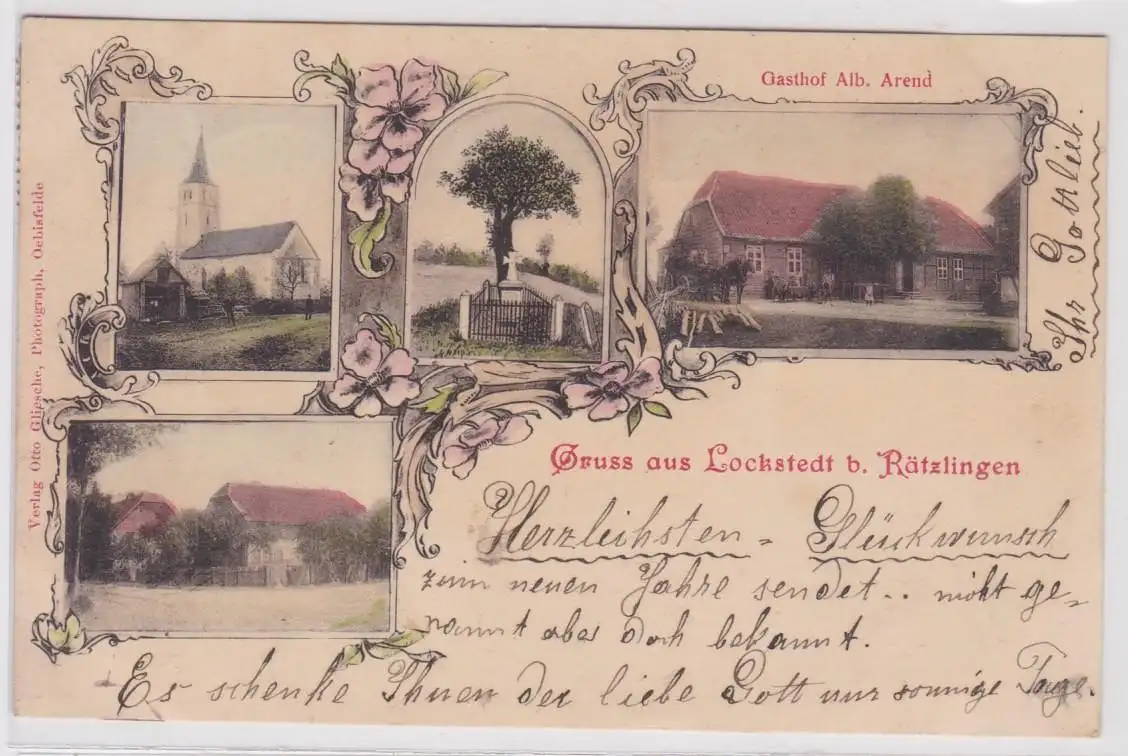 Gasthof Alb. Arend
Verlag Otto Gliesche, Photograph, Oebisfelde
Gruss aus Lockstedt b. Rätzlingen
Herzleichsten - Glückwunsch
zum neuen Jahre sendet.. nicht ge-
nannt aber doch bekannt.
Es schenke Ihnen der liebe Gott nur sonnige Tage.
Ihr Gottlieb.